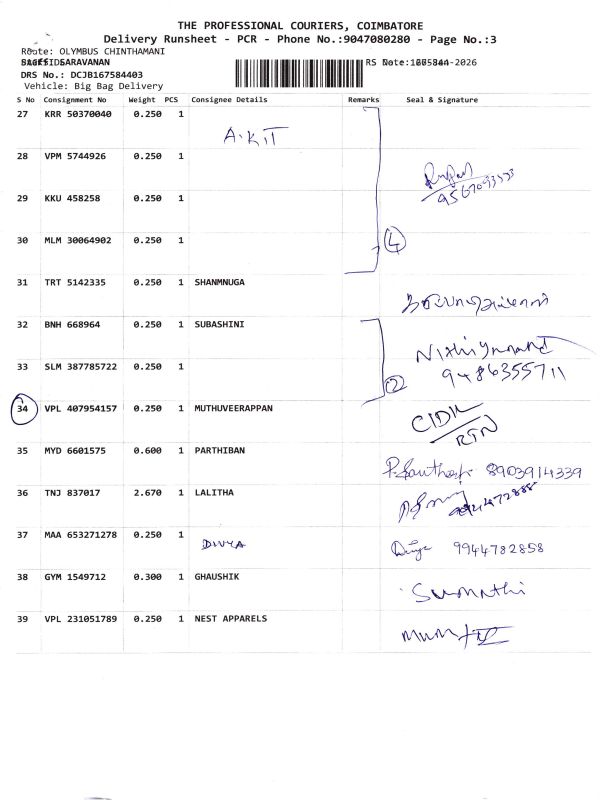 THE PROFESSIONAL COURIERS, COIMBATORE
Delivery Runsheet - PCR - Phone No.:9047080280 - Page No.:3
Route: OLYMBUS CHINTHAMANI
SARAVANAN
DRS No.: DCJB167584403
Vehicle: Big Bag Delivery
S No Consignment No Weight PCS Consignee Details Remarks Seal & Signature
27 KRR 50370040 0.250 1 A.KIT
28 VPM 5744926 0.250 1
29 KKU 458258 0.250 1
30 MLM 30064902 0.250 1 4
31 TRT 5142335 0.250 1 SHANMNUGA
32 BNH 668964 0.250 1 SUBASHINI
33 SLM 387785722 0.250 1 2 9486355711
34 VPL 407954157 0.250 1 MUTHUVEERAPPAN RTN
35 MYD 6601575 0.600 1 PARTHIBAN P. Santhosh 8903914339
36 TNJ 837017 2.670 1 LALITHA
37 MAA 653271278 0.250 1 DIVYA Divya 9944782858
38 GYM 1549712 0.300 1 GHAUSHIK Sumathi
39 VPL 231051789 0.250 1 NEST APPARELS